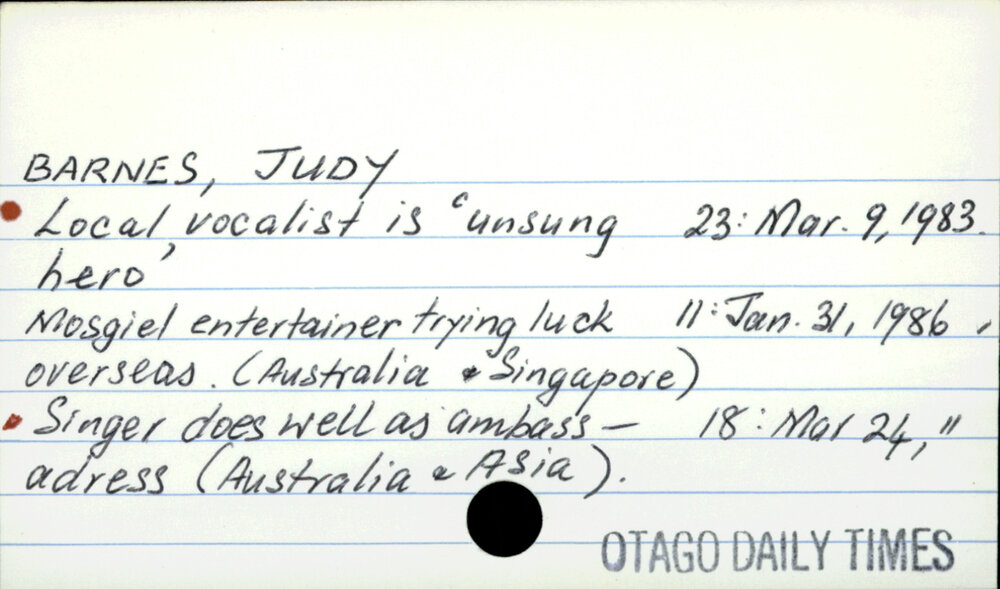 BARNES, JUDY
Local vocalist is 'unsung 23: Mar. 9, 1983.
hero'
Mosgiel entertainer trying luck 11: Jan. 31, 1986.
overseas. (Australia & Singapore)
Singer does well as ambass-  18: Mar 24, "
adress (Australia & Asia).
OTAGO DAILY TIMES